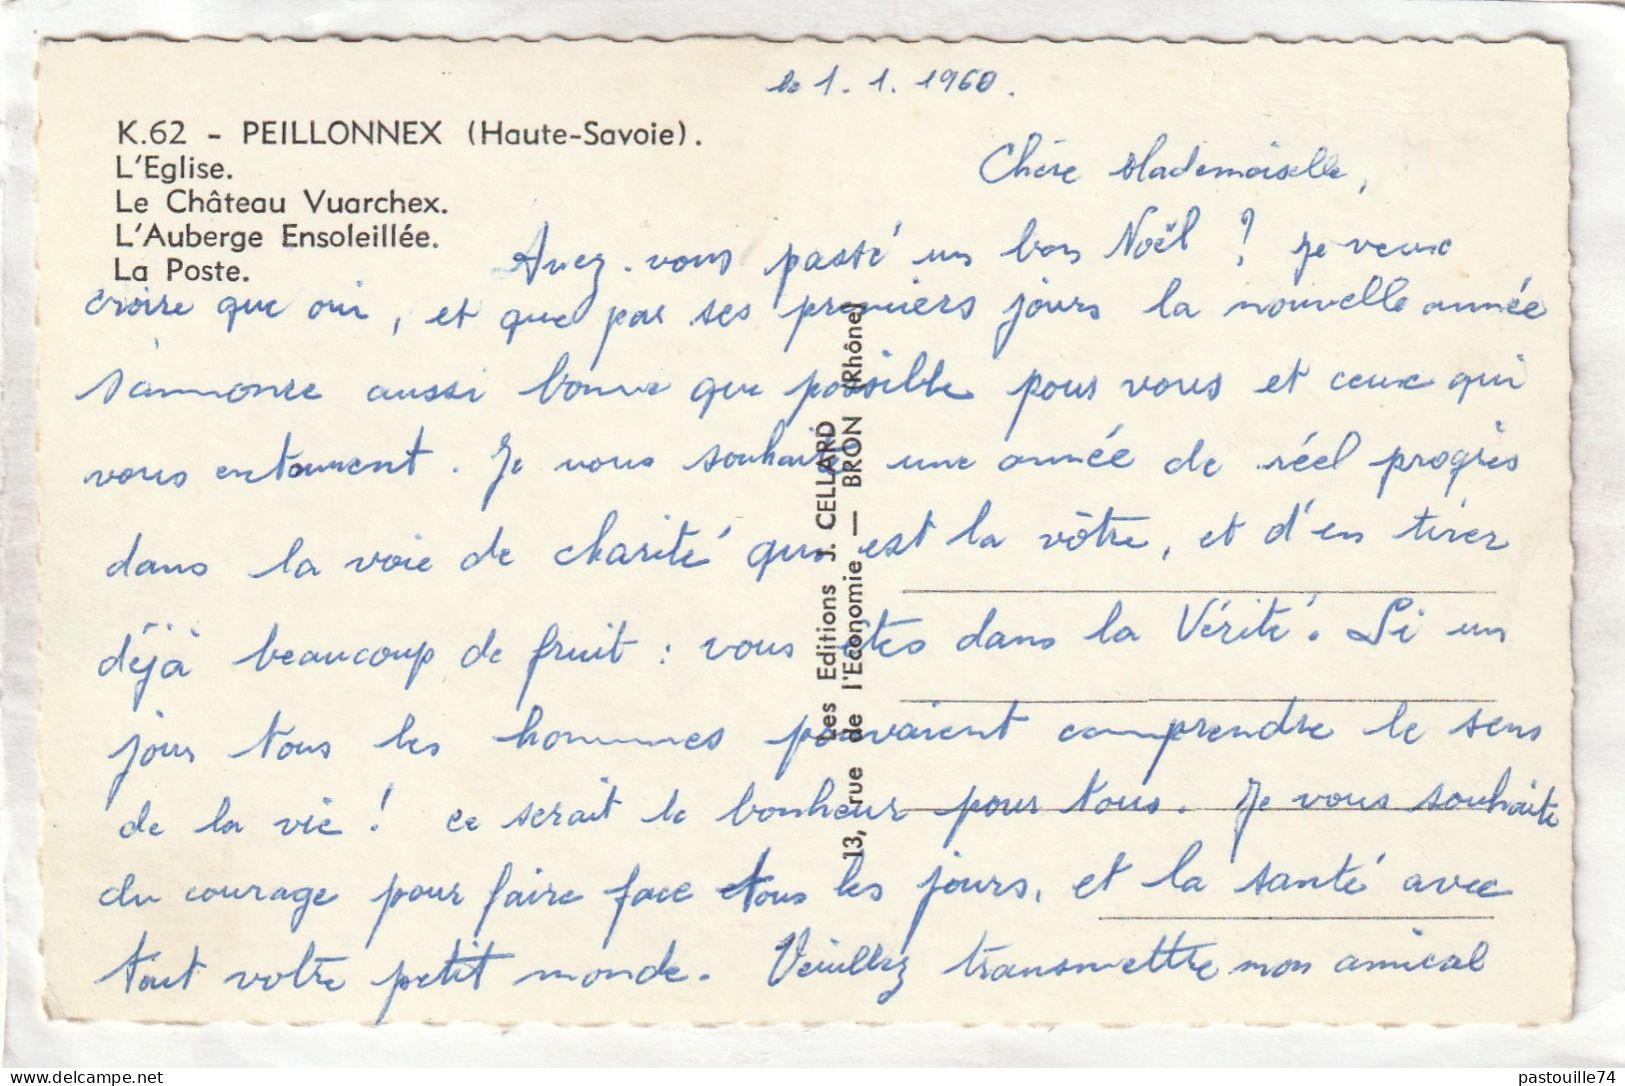 le 1.1.1960.
K.62 - PEILLONNEX (Haute-Savoie).
L'Eglise.
Le Château Vuarchex.
L'Auberge Ensoleillée.
La Poste.
Chère Mademoiselle,
Avez-vous passé un bon Noël ? Je veux
croire que oui, et que par ses premiers jours la nouvelle année
s'annonce aussi bonne que possible pour vous et ceux qui
vous entourent. Je vous souhaite une année de réel progrès
dans la voie de charité qui est la vôtre, et d'en tirer
déjà beaucoup de fruit : vous êtes dans la Vérité. Si un
jour tous les hommes pouvaient comprendre le sens
de la vie ! ce serait le bonheur pour tous. Je vous souhaite
du courage pour faire face tous les jours, et la santé avec
tout votre petit monde. Veuillez transmettre mon amical
Les Editions J. CELLARD
13, rue de l'Economie — BRON (Rhône)
delcampe.net
pastouille74